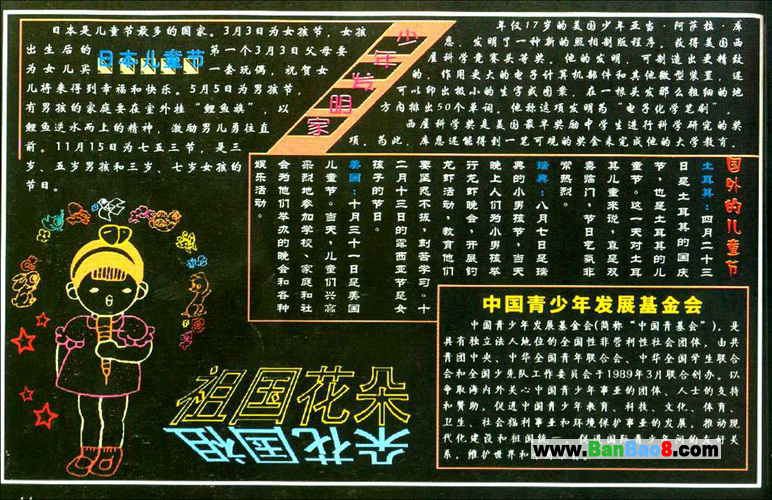 日本是儿童节最多的国家。3月3日为女孩节，女孩
出生后的 第一个3月3日父母要
日本儿童节
为女儿买 一套玩偶，祝贺女
儿将来得到幸福和快乐。5月5日为男孩节，
有男孩的家庭要在室外挂“鲤鱼旗”，以
鲤鱼逆水而上的精神，激励男儿勇往直
前。11月15日为七五三节，是三
岁、五岁男孩和三岁、七岁女孩的
节日。
少年发明家
年仅17岁的美国少年亚当·阿萨拉·库
恩，发明了一种新的照相制版程序，获得美国西
屋科学竞赛头等奖。他的发明，可制造出更精致
的、作用更大的电子计算机部件和其他微型装置，还
可以印出极小的生字或图案，在一根头发那么粗细的地
方内排出50个单词。他称这项发明为“电子化学笔刷”。
西屋科学奖是美国最早奖励中学生进行科学研究的奖
项，为此，库恩还能得到一笔可观的奖金来完成他的大学教育。
国外的儿童节
土耳其：四月二十三
日是土耳其的国庆
节，也是土耳其的儿
童节。这一天对土耳
其儿童来说，真是双
喜临门，节日气氛非
常热烈。
瑞典：八月七日是瑞
典的小男孩节，当天
晚上人们为小男孩举
行龙虾晚会，开展钓
龙虾活动，教育他们
要坚忍不拔，刻苦学习。十
二月十三日的露西亚节是女
孩子的节日。
美国：十月三十一日是美国
儿童节。当天，儿童们兴高
采烈地参加学校、家庭和社
会为他们举办的晚会和各种
娱乐活动。
中国青少年发展基金会
中国青少年发展基金会(简称“中国青基会”)，是
具有独立法人地位的全国性非营利性社会团体，由共
青团中央、中华全国青年联合会、中华全国学生联合
会和全国少先队工作委员会于1989年3月联合创办。以
争取海内外关心中国青少年事业的团体、人士的支持
和赞助，促进中国青少年教育、科技、文化、体育、
卫生、社会福利事业和环境保护事业的发展，推动现
代化建设和祖国统一，促进国际青少年间的友好关
系，维护世界和
www.BanBao8.com
祖国花朵
祖国花朵